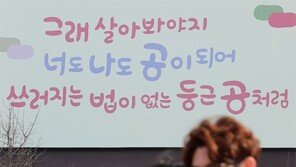 그래 살아봐야지
너도 나도 공이 되어
쓰러지는 법이 없는 둥근 공처럼